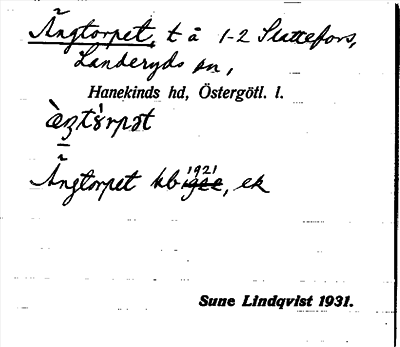 Ängtorpet, t å 1-2 Slattefors,
Landeryds sn,
Hanekinds hd, Östergötl. l.
Ängtorpet kb 1921, ek
Sune Lindqvist 1931.